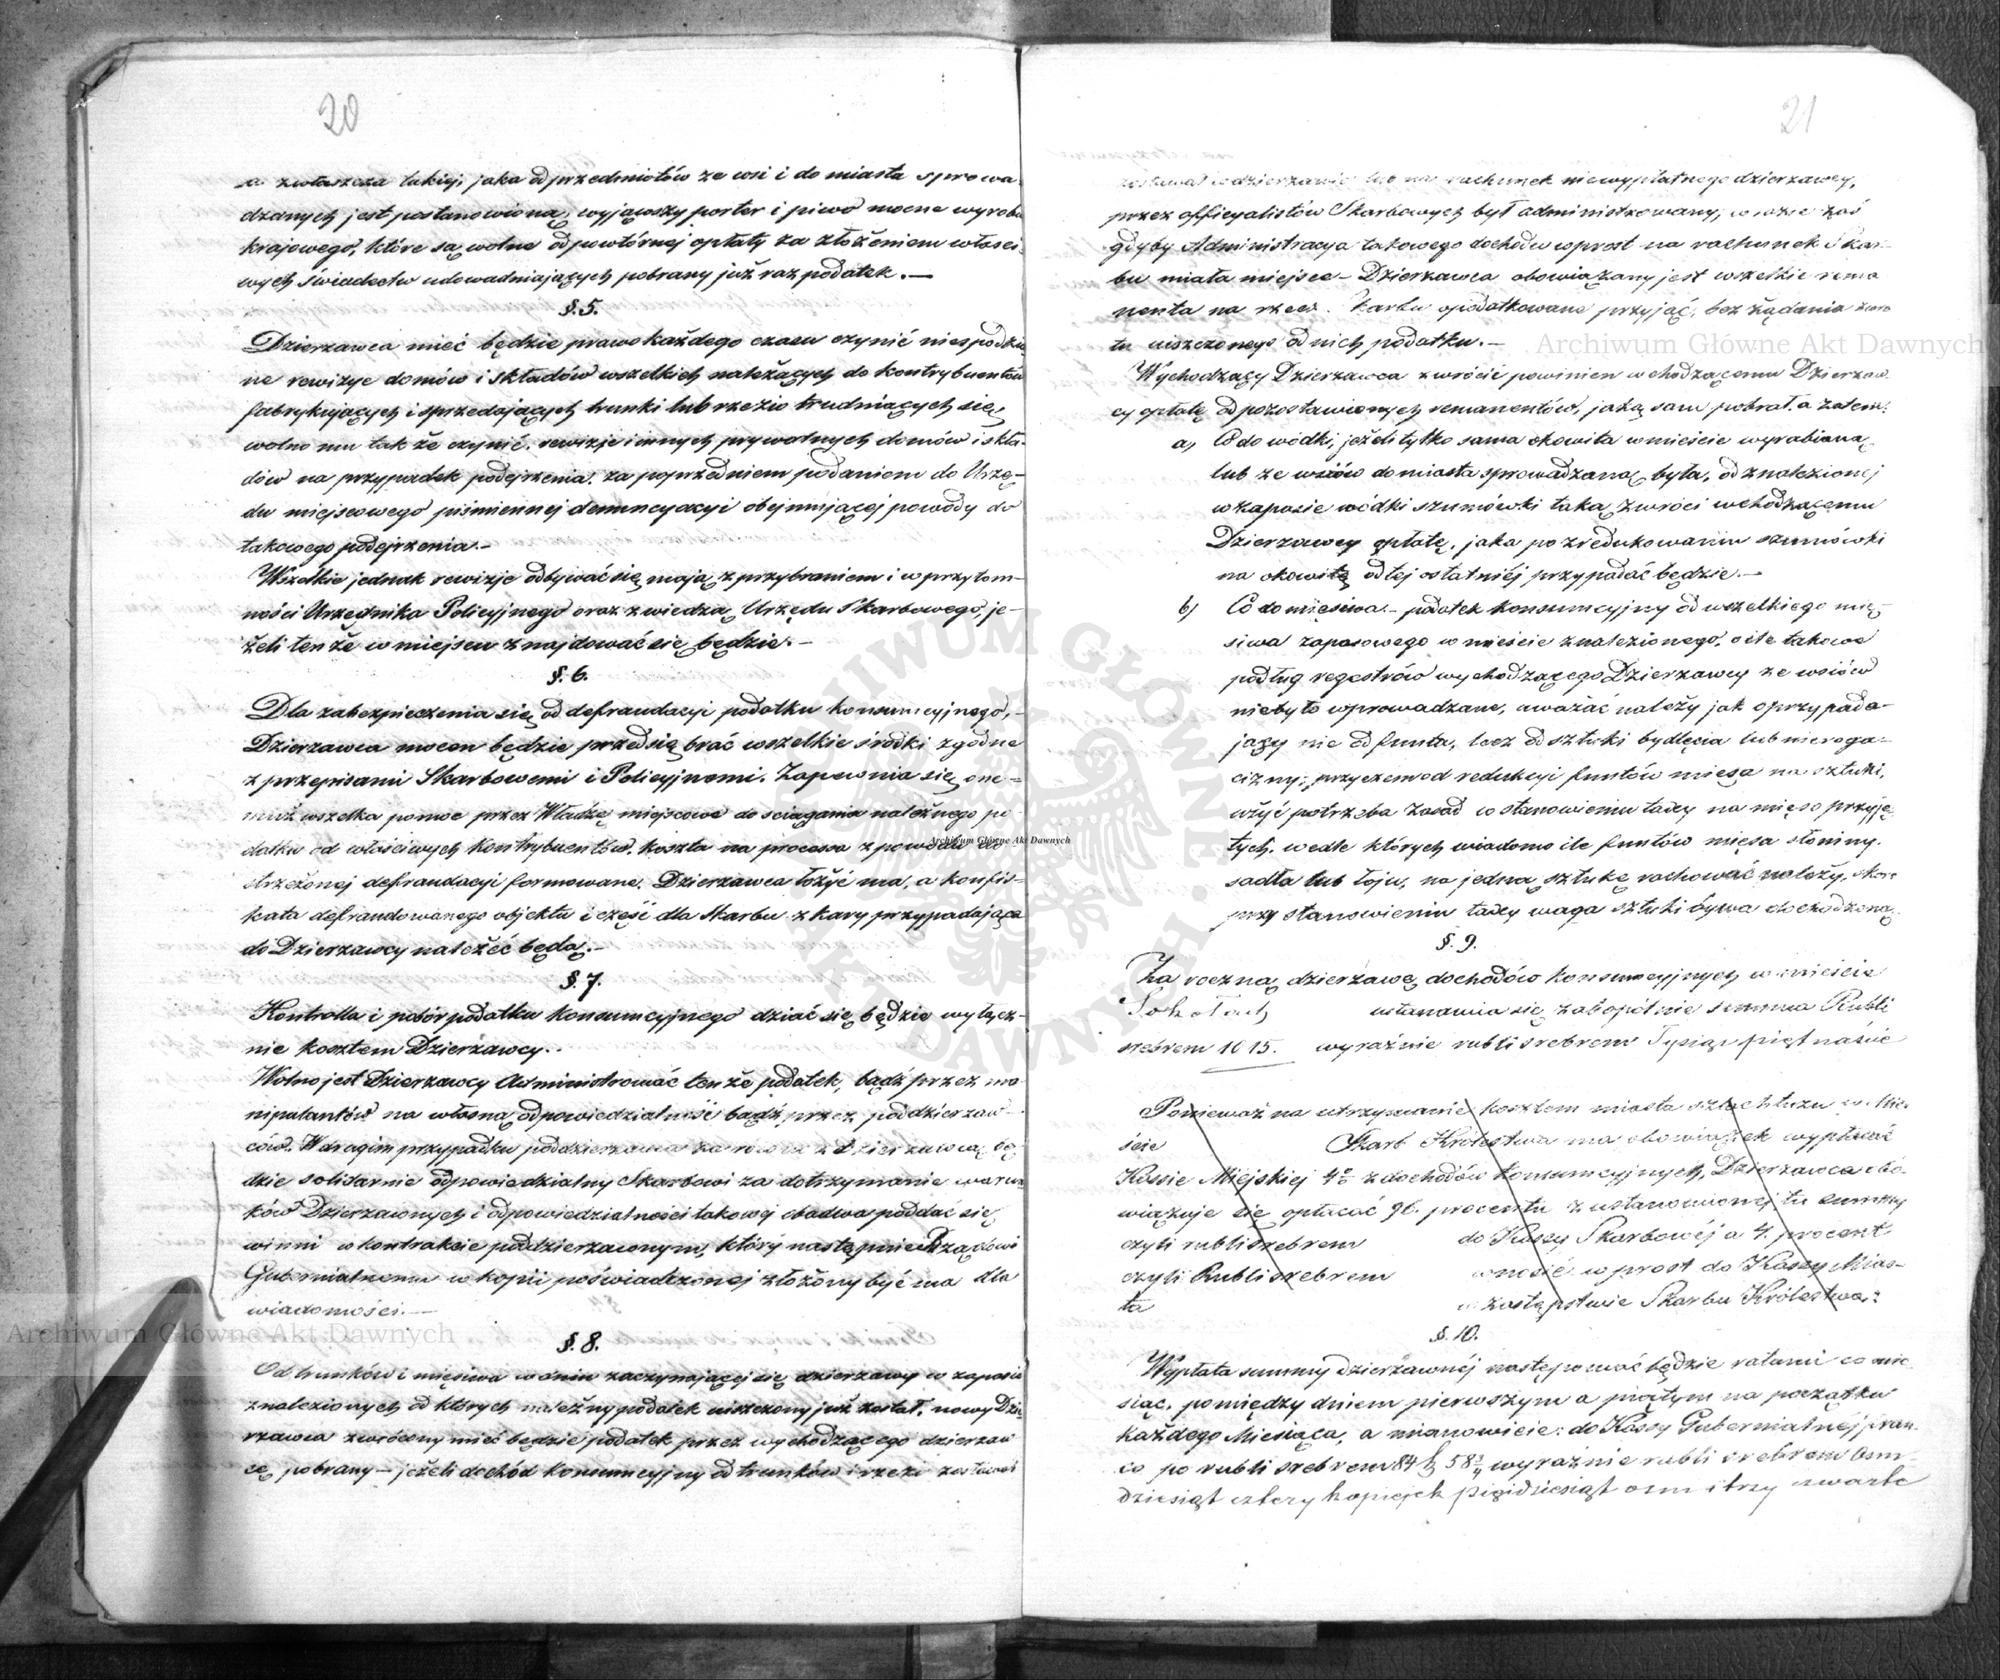 20
a zwłaszcza takiej, jaka od przedmiotów ze wsi i do miasta sprowa-
dzanych jest postanowioną, wyjąwszy porter i piwo mocne wyrobu
krajowego, które są wolne od powtórnej opłaty za złożeniem właści-
wych świadectw udowadniających pobrany już raz podatek.—
§. 5.
Dzierzawca mieć będzie prawo każdego czasu czynić niespodzie
ne rewizye domów i składów wszelkich należących do kontrybuentów
fabrykujących i sprzedających trunki lub rzezio trudniących się,
wolno mu także czynić rewizje i innych prywatnych domów i skła-
dów na przypadek podejrzenia, za poprzedniem podaniem do Urzę-
du miejscowego piśmiennej denuncyacyi obejmującej powody do
takowego podejrzenia.—
Wszelkie jednak rewizje odbywać się mają z przybraniem i w przytom-
ności Urzędnika Policyjnego oraz z wiedzą Urzędu Skarbowego, je-
żeli tenże w miejscu znajdować się będzie.—
§. 6.
Dla zabezpieczenia się od defraudacyi podatku konsumcyjnego,-
Dzierzawca mocen będzie przedsiębrać wszelkie środki zgodne
z przepisami Skarbowemi i Policyjnemi. Zapewnia się one-
muż wszelka pomoc przez Władzę miejscowe do ściągania należnego po
datku od właściwych kontrybuentów. koszta na processa z powodu do
strzeżonej defraudacyi formowane, Dzierzawca łożyć ma, a konfis-
kata defraudowanego objektu i część dla Skarbu z kary przypadająca
do Dzierzawcy należeć będą.—
§. 7.
Kontrolla i pobór podatku konsumcyjnego dziać się będzie wyłącz-
nie kosztem Dzierzawcy..
Wolno jest Dzierzawcy Administrować tenże podatek, bądź przez ma
nipulantów na własną odpowiedzialność bądź przez poddzierzaw-
ców. W drugim przypadku poddzierzawca zarowno z Dzierzawcą bę
dzie solidarnie odpowiedzialny Skarbowi za dotrzymanie warun
ków Dzierzawnych i odpowiedzialności takowej obadwa poddać się
winni w kontrakcie poddzierzawnym, który następnie Rządowi
Gubernialnemu w kopii poświadczonej złożony być ma dla
wiadomości.—
§. 8.
Od trunków i mięsiwa w dniu zaczynającej się dzierzawy w zapasie
znalezionych od których należny podatek uiszczony już został, nowy Dzie
rzawca zwrócony mieć będzie podatek przez wychodzącego dzierzaw
cę pobrany – jeżeli dochód konsumcyjny od trunków i rzezi zostawał
21
zostawał w dzierzawie lub na rachunek niewypłatnego dzierzawcy,
przez officyalistów Skarbowych był administrowany, w razie zaś
gdyby Administracya takowego dochodu wprost na rachunek Skar-
bu miała miejsce – Dzierzawca obowiązany jest wszelkie rema
nenta na rzecz Skarbu opodatkowane przyjąć, bez żądania zwro
tu uiszczonego od nich podatku.—
Wychodzący Dzierzawca zwrócić powinien wchodzącemu Dzierzaw
cy opłatę od pozostawionych remanentów, jaką sam pobrał. a zatem:
a, Co do wódki, jeżeli tylko sama okowita w mieście wyrabianą
lub ze wsiów do miasta sprowadzaną była, od znalezionej
w zapasie wódki szumówki taką zwróci wchodzącemu
Dzierzawcy opłatę, jaka po zredukowaniu szumówki
na okowitę od tej ostatniej przypadać będzie.—
b) Co do mięsiwa – podatek konsumcyjny od wszelkiego mię-
siwa zapasowego w mieście znalezionego, o ile takowe
podług regestrów wychodzącego Dzierzawcy ze wsiów
niebyło wprowadzane, uważać należy jak o przypada-
jący nie od funta, lecz od sztuki bydlęcia lub nieroga-
cizny; przyczem od redukcyi funtów mięsa na sztuki,
użyć potrzeba zasad w stanowieniu taxy na mięso przyję
tych, wedle których wiadomo ile funtów mięsa słoniny,
sadła lub łoju, na jedną sztukę rachować należy, skoro
przy stanowieniu taxy waga sztuki bywa dochodzoną.
§. 9.
Za roczną dzierżawę dochodów konsumcyjnych w mieście
Sokołach ustanawia się zabopólnie summa Rubli
srebrem 1015. wyraźnie rubli srebrem Tysiąc piętnaście
Ponieważ na utrzymanie kosztem miasta szlachtuzu w Mie-
ście Skarb Królestwa ma obowiązek wypłacać
Kassie Miejskiej 4% z dochodów konsumcyjnych, Dzierzawca obo-
wiązuje się opłacać 96. procentu z ustanowionej tu summy
czyli rubli srebrem do Kassy Skarbowéj a 4. procent
czyli Rubli srebrem wnosić wprost do Kassy Mias-
ta w zastępstwie Skarbu Królestwa.
§. 10.
Wypłata summy dzierżawnéj następować będzie ratami co mie
siąc, pomiędzy dniem pierwszym a piątym na początku
każdego Miesiąca, a mianowicie: do Kassy Gubernialnej fran-
co po rubli srebrem 84 k 58¾ wyraźnie rubli srebrem Osm-
dziesiąt cztery kopiejek pięćdziesiąt osm i trzy czwarte
Archiwum Główne Akt Dawnych
Archiwum Główne Akt Dawnych
Archiwum Główne Akt Dawnych
ARCHIWUM GŁÓWNE AKT DAWNYCH